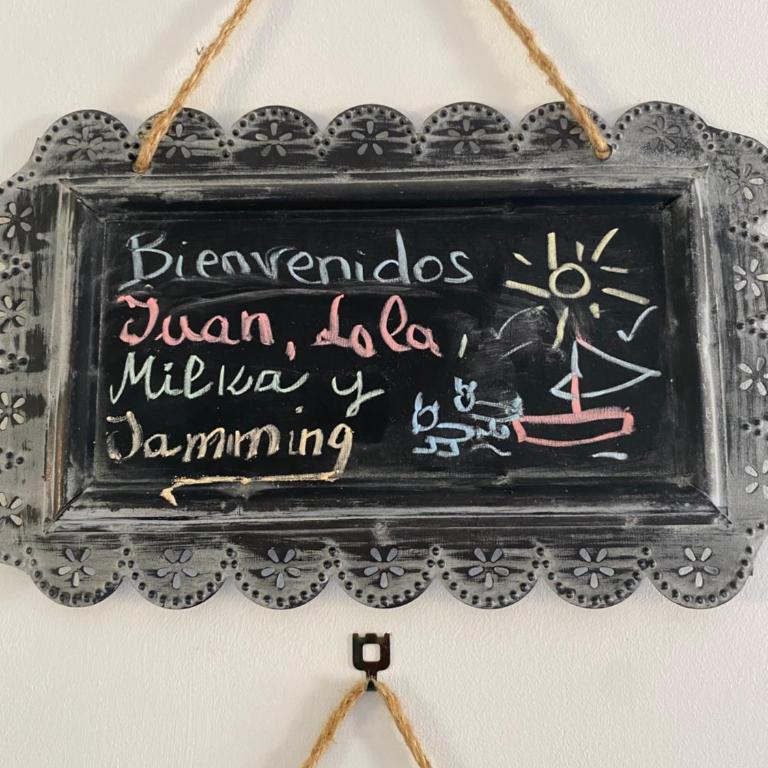 Bienvenidos
Juan, Lola,
Milka y
Jamming